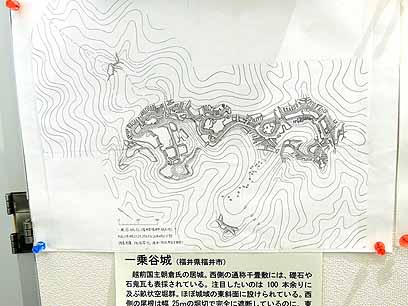 一乗谷城（福井県福井市）
越前国主朝倉氏の居城。西側の通称千畳敷には、礎石や
石鬼瓦も表採されている。注目したいのは 100 本余りに
及ぶ畝状空堀群。ほぼ城域の東斜面に設けられている。西
側の尾根は幅 25mの堀切で完全に遮断しているのに、東